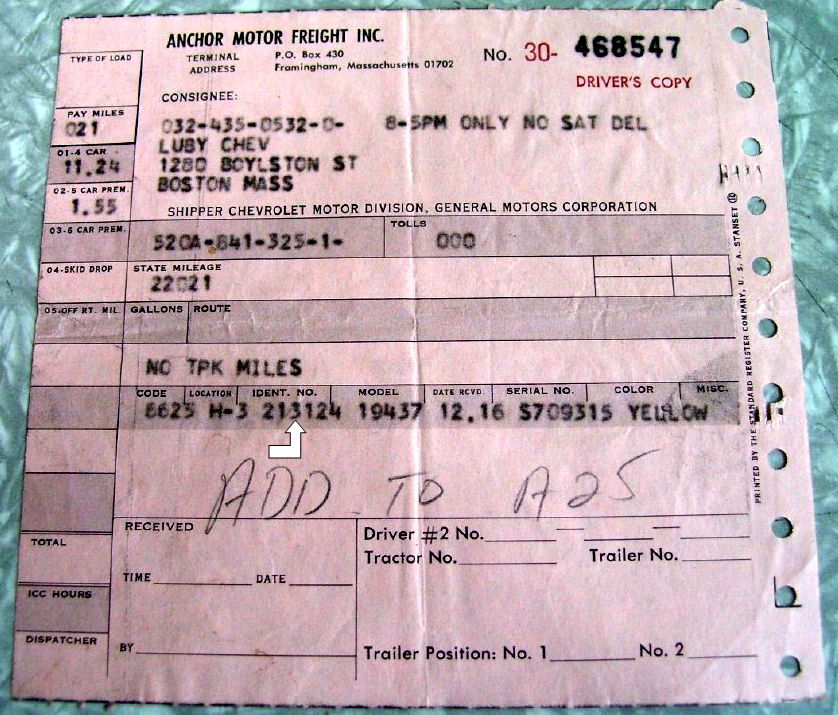 ANCHOR MOTOR FREIGHT INC.
TERMINAL ADDRESS P.O. Box 430
Framingham, Massachusetts 01702
No. 30- 468547
DRIVER'S COPY
TYPE OF LOAD
CONSIGNEE:
PAY MILES
021
032-435-0532-0- 8-5PM ONLY NO SAT DEL
LUBY CHEV
01-4 CAR
11.24
1280 BOYLSTON ST
BOSTON MASS
02-5 CAR PREM.
1.55
SHIPPER CHEVROLET MOTOR DIVISION, GENERAL MOTORS CORPORATION
03-6 CAR PREM.
520A-841-325-1-
TOLLS
000
04-SKID DROP
STATE MILEAGE
22021
05-OFF RT. MIL. GALLONS ROUTE
NO TPK MILES
CODE LOCATION IDENT. NO. MODEL DATE RCVD. SERIAL NO. COLOR MISC.
6625 H-3 213124 19437 12.16 S709315 YELLOW
ADD TO A25
RECEIVED
Driver #2 No.
Tractor No. Trailer No.
TOTAL
TIME DATE
ICC HOURS
DISPATCHER
BY
Trailer Position: No. 1 No. 2
PRINTED BY THE STANDARD REGISTER COMPANY, U. S. A. STANSET